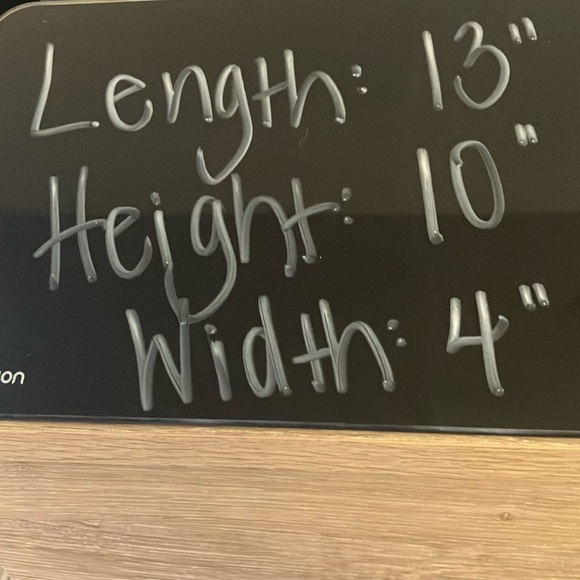 Length: 13"
Height: 10"
Width: 4"